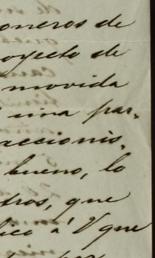 oneros de
oyecto de
movida
una par-
accionis-
bueno, lo
tros, que
lico á V que